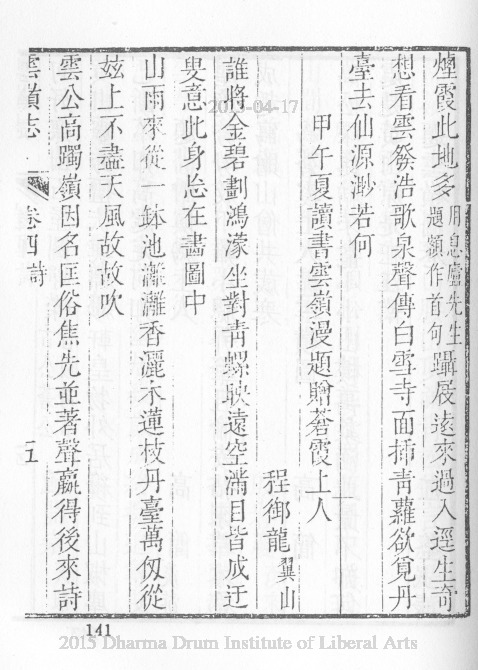 煙霞此地多用息廬先生題額作首句躡屐遠來過入逕生奇
想看雲發浩歌泉聲傳白雪寺面揷青蘿欲覓丹
臺去仙源渺若何
甲午夏讀書雲嶺漫題贈蒼霞上人
程御龍翼山
誰將金碧劃鴻濛坐對靑螺映遠空滿目皆成迂
叟意此身忘在畵圖中
山雨來從一鉢池灕灕香灑木蓮枝丹臺萬仞從
玆上不盡天風故故吹
雲公高躅嶺因名匡俗焦先並著聲贏得後來詩
雲嶺志
卷四詩
五
141
2015-04-17
2015 Dharma Drum Institute of Liberal Arts